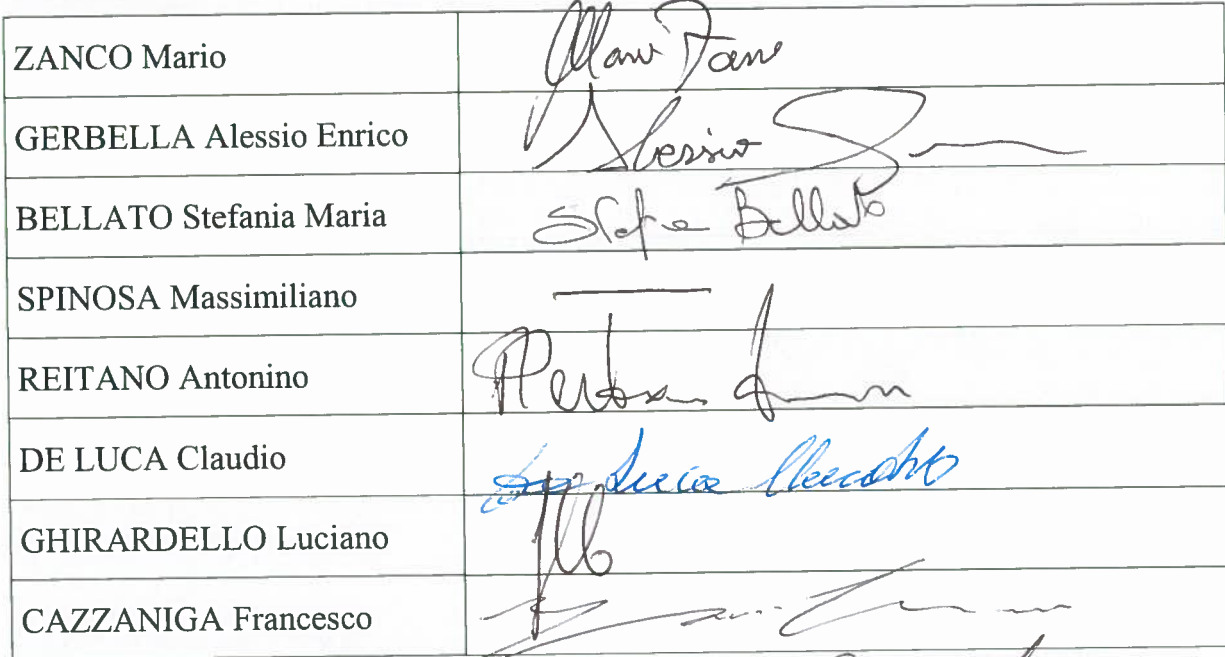 ZANCO Mario
GERBELLA Alessio Enrico
Alessio
BELLATO Stefania Maria
Bellato
SPINOSA Massimiliano
REITANO Antonino
DE LUCA Claudio
GHIRARDELLO Luciano
CAZZANIGA Francesco